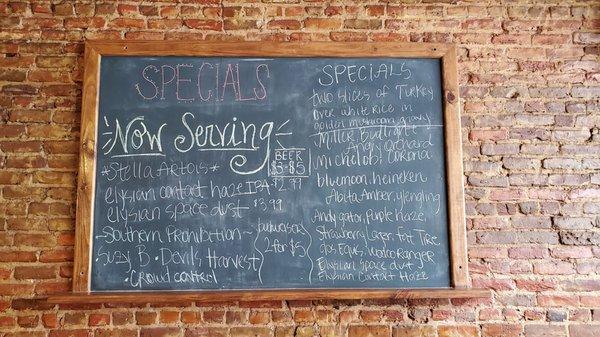 SPECIALS
Now Serving
BEER
$3-$5
*Stella Artois*
elysian contact haze IPA $2.99
elysian space dust $3.99
Southern Prohibition~
Suzy B • Devils Harvest
• Crowd control
2 for $5
SPECIALS
two slices of Turkey
over white rice in
golden mushroom gravy
Miller, Budlight
Angry orchard
Michelob, corona
bluemoon, heineken
Abita Amber, yuengling
Andygator, Purple Haze,
Strawberry Lager, Fat Tire
Dos Equis,
Elysian Space dust
Elysian Contact Haze